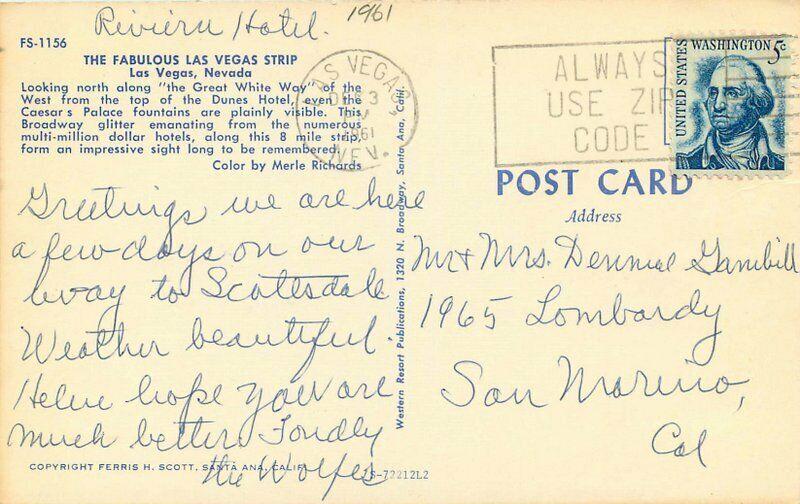 Riviera Hotel.
1961
FS-1156
THE FABULOUS LAS VEGAS STRIP
Las Vegas, Nevada
Looking north along "the Great White Way" of the
West from the top of the Dunes Hotel, even the
Caesar's Palace fountains are plainly visible. This
Broadway glitter emanating from the numerous
multi-million dollar hotels, along this 8 mile strip,
form an impressive sight long to be remembered.
Color by Merle Richards
LAS VEGAS
DEC 3
1961
NEV.
ALWAYS
USE ZIP
CODE
UNITED STATES
WASHINGTON 5c
POST CARD
Address
Greetings we are here
a few days on our
way to Scottsdale
Weather beautiful.
hope you are
much better. Fondly
the Wolfes
Mr & Mrs. Gambill
1965 Lombardy
San Marino,
Cal
Western Resort Publications, 1320 N. Broadway, Santa Ana, Calif.
COPYRIGHT FERRIS H. SCOTT, SANTA ANA, CALIF.
S-72212L2